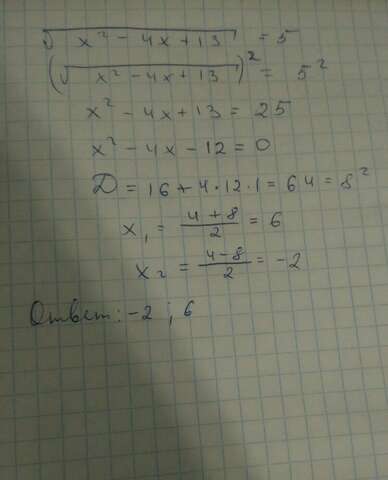 √(x² - 4x + 13) = 5
(√(x² - 4x + 13))² = 5²
x² - 4x + 13 = 25
x² - 4x - 12 = 0
D = 16 + 4·12·1 = 64 = 8²
x₁ = (4+8)/2 = 6
x₂ = (4-8)/2 = -2
Ответ: -2 ; 6